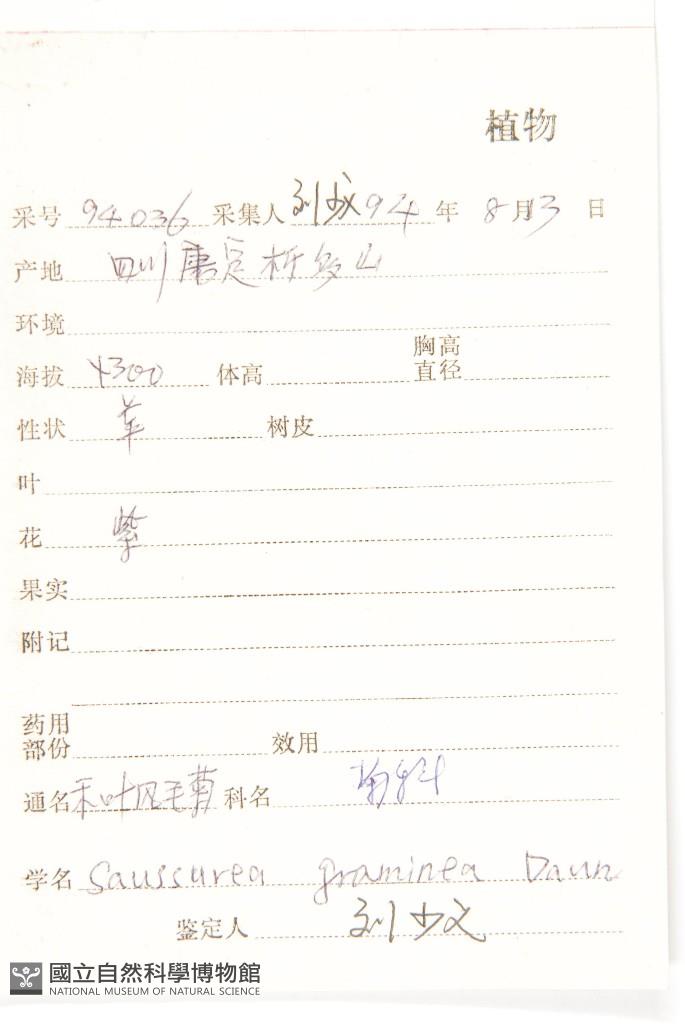 植物
采号 94036 采集人 刘少文 94 年 8 月 3 日
产地 四川康定折多山
环境
海拔 4300 体高 胸高直径
性状 草 树皮
叶
花 紫
果实
附记
药用部份 效用
通名 禾叶风毛菊 科名 菊科
学名 Saussurea graminea Dunn
鉴定人 刘少文
國立自然科學博物館
NATIONAL MUSEUM OF NATURAL SCIENCE